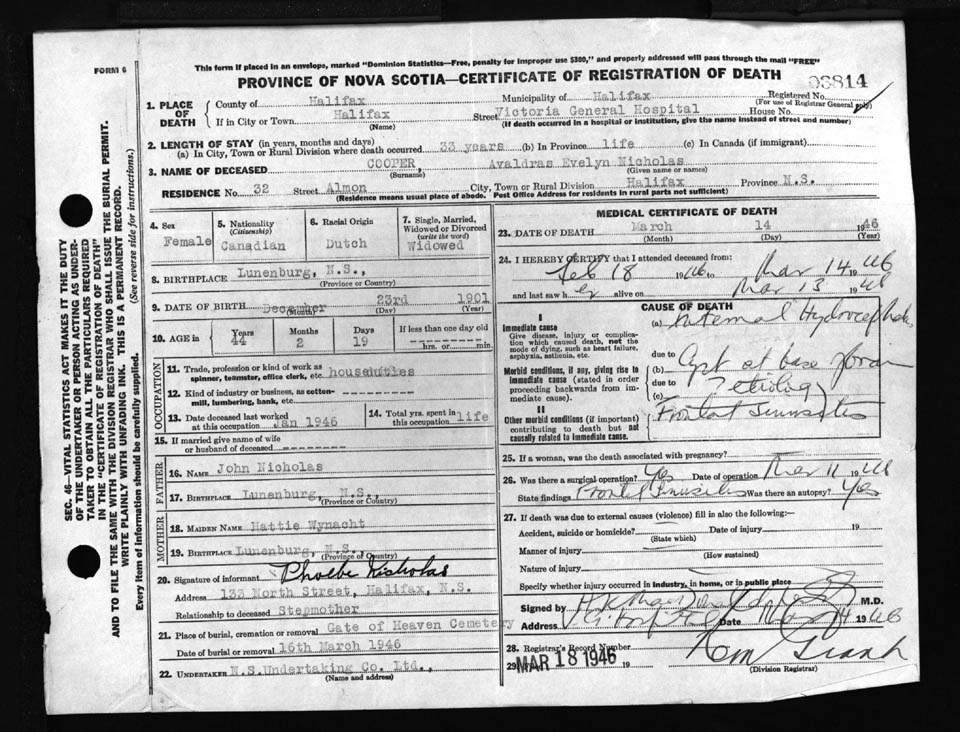 FORM 6
This form if placed in an envelope, marked "Dominion Statistics—Free, penalty for improper use $300," and properly addressed will pass through the mail "FREE"
PROVINCE OF NOVA SCOTIA—CERTIFICATE OF REGISTRATION OF DEATH
1. PLACE OF DEATH
County of Halifax Municipality of Halifax Registered No. 03814
(For use of Registrar General only)
If in City or Town Halifax Street Victoria General Hospital House No.
(Name) (If death occurred in a hospital or institution, give the name instead of street and number)
2. LENGTH OF STAY (in years, months and days)
(a) In City, Town or Rural Division where death occurred 33 years (b) In Province life (c) In Canada (if immigrant)
3. NAME OF DECEASED COOPER, Avaldras Evelyn Nicholas
(Surname) (Given name or names)
RESIDENCE No. 32 Street Almon City, Town or Rural Division Halifax Province N.S.
(Residence means usual place of abode. Post Office Address for residents in rural parts not sufficient)
4. Sex Female
5. Nationality (Citizenship) Canadian
6. Racial Origin Dutch
7. Single, Married, Widowed or Divorced (write the word) Widowed
8. BIRTHPLACE Lunenburg, N.S.,
(Province or Country)
9. DATE OF BIRTH December 23rd 1901
(Month) (Day) (Year)
10. AGE in Years 44 Months 2 Days 19 If less than one day old
hrs. or min.
OCCUPATION
11. Trade, profession or kind of work as spinner, teamster, office clerk, etc. houseduties
12. Kind of industry or business, as cotten-mill, lumbering, bank, etc.
13. Date deceased last worked at this occupation Jan 1946
14. Total yrs. spent in this occupation life
15. If married give name of wife or husband of deceased
FATHER
16. Name John Nicholas
17. Birthplace Lunenburg, N.S.,
(Province or Country)
MOTHER
18. Maiden Name Hattie Wynacht
19. Birthplace Lunenburg, N.S.,
(Province or Country)
20. Signature of informant Phoebe Nicholas
Address 133 North Street, Halifax, N.S.
Relationship to deceased Stepmother
21. Place of burial, cremation or removal Gate of Heaven Cemetery
Date of burial or removal 16th March 1946
22. UNDERTAKER N.S.Undertaking Co. Ltd.,
(Name and address)
MEDICAL CERTIFICATE OF DEATH
23. DATE OF DEATH March 14 1946
(Month) (Day) (Year)
24. I HEREBY CERTIFY that I attended deceased from:
Feb 18 1946 to Mar 14 1946
and last saw her alive on Mar 13 1946
CAUSE OF DEATH
I
Immediate cause
Give disease, injury or complication which caused death, not the mode of dying, such as heart failure, asphyxia, asthenia, etc.
(a) Internal Hydrocephalus
due to
Morbid conditions, if any, giving rise to immediate cause (stated in order proceeding backwards from immediate cause).
(b) Cyst at base of brain
due to
(c) ? etiology
II
Other morbid conditions (if important) contributing to death but not causally related to immediate cause.
Frontal Sinusitis
25. If a woman, was the death associated with pregnancy?
26. Was there a surgical operation? Yes Date of operation Mar 11 1946
State findings Frontal Sinusitis Was there an autopsy? Yes
27. If death was due to external causes (violence) fill in also the following:—
Accident, suicide or homicide? Date of injury 19
(State which)
Manner of injury
(How sustained)
Nature of injury
Specify whether injury occurred in industry, in home, or in public place
Signed by M.D.
Address V.G. Hospital Date Mar 14 1946
28. Registrar's Record Number
29. MAR 18 1946 19
(Division Registrar)
SEC. 46-VITAL STATISTICS ACT MAKES IT THE DUTY
OF THE UNDERTAKER OR PERSON ACTING AS UNDER-
TAKER TO OBTAIN ALL THE PARTICULARS REQUIRED
IN THE "CERTIFICATE OF REGISTRATION OF DEATH"
AND TO FILE THE SAME WITH THE DIVISION REGISTRAR WHO SHALL ISSUE THE BURIAL PERMIT.
WRITE PLAINLY WITH UNFADING INK. THIS IS A PERMANENT RECORD.
Every item of information should be carefully supplied. (See reverse side for instructions.)